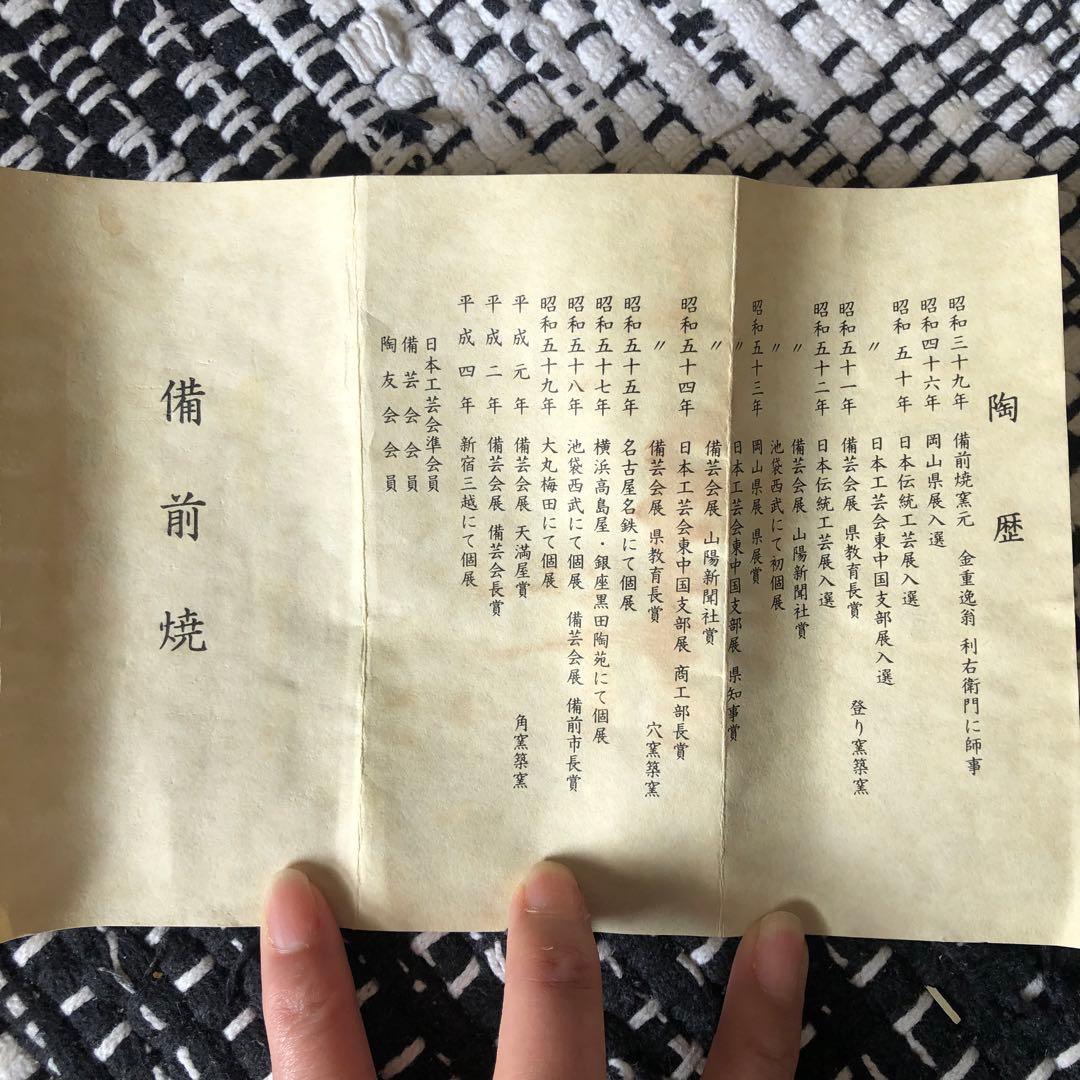 陶歴
昭和三十九年 備前焼窯元 金重逸翁 利右衛門に師事
昭和四十六年 岡山県展入選
昭和五十年 日本伝統工芸展入選
〃 日本工芸会東中国支部展入選
昭和五十一年 備芸会展 県教育長賞 登り窯築窯
昭和五十二年 日本伝統工芸展入選
〃 備芸会展 山陽新聞社賞
〃 池袋西武にて初個展
昭和五十三年 岡山県展 県展賞
〃 日本工芸会東中国支部展 県知事賞
〃 備芸会展 山陽新聞社賞
昭和五十四年 日本工芸会東中国支部展 商工部長賞
〃 備芸会展 県教育長賞 穴窯築窯
昭和五十五年 名古屋名鉄にて個展
昭和五十七年 横浜高島屋・銀座黒田陶苑にて個展
昭和五十八年 池袋西武にて個展 備芸会展 備前市長賞
昭和五十九年 大丸梅田にて個展
平成元年 備芸会展 天満屋賞 角窯築窯
平成二年 備芸会展 備芸会長賞
平成四年 新宿三越にて個展
日本工芸会準会員
備芸会会員
陶友会会員
備前焼